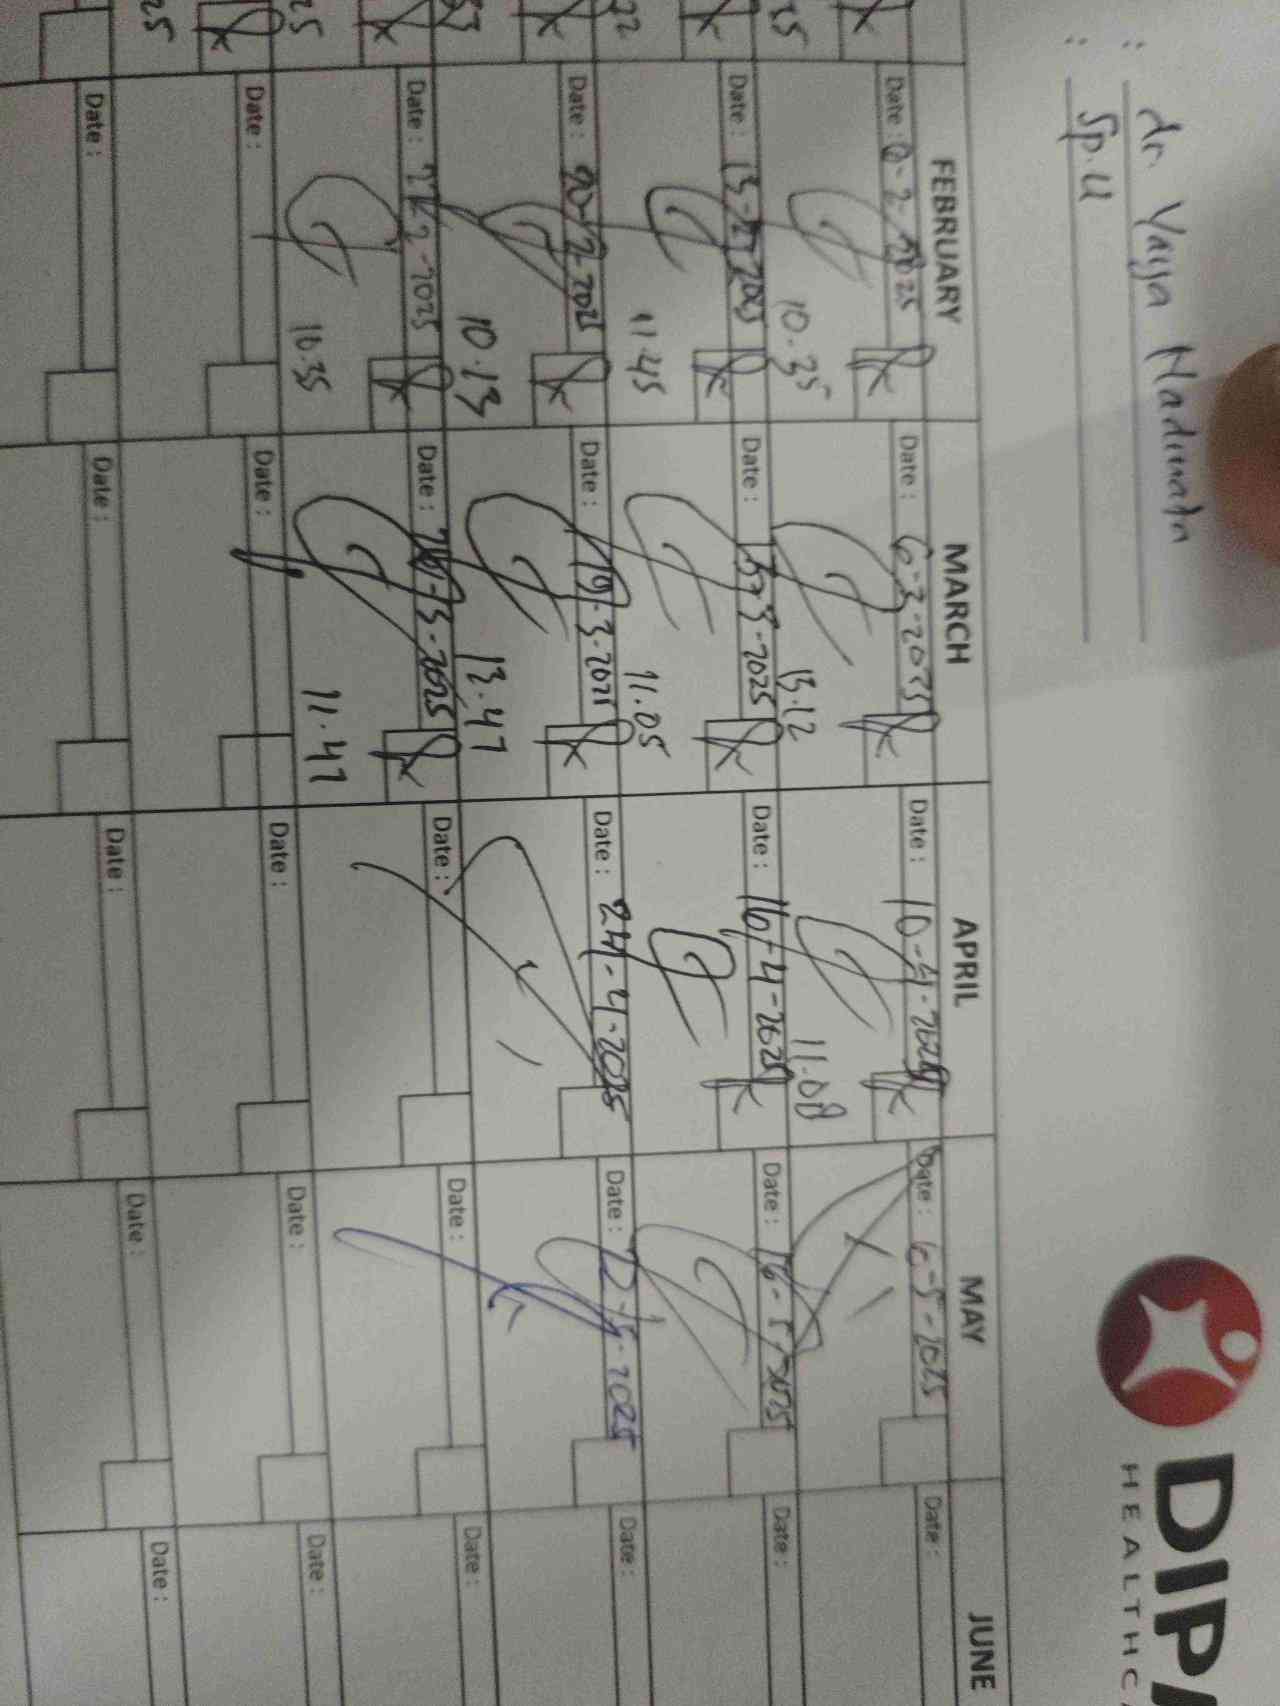 : dr. Yasya Hadinata
: Sp.U
DIPA
HEALTHCA
FEBRUARY MARCH APRIL MAY JUNE
Date: 6-2-2025 Date: 6-3-2025 Date: 10-4-2025 Date: 6-5-2025 Date:
10.35 13.12 11.08
Date: 13-2-2025 Date: 13-3-2025 Date: 16-4-2025 Date: 16-5-2025 Date:
11.45 11.05
Date: 20-2-2025 Date: 19-3-2025 Date: 24-4-2025 Date: 22-5-2025 Date:
10.13 13.47
Date: 2-2025 Date: 3-2025 Date: Date: Date:
10.35 11.47
Date: Date: Date: Date: Date:
Date: Date: Date: Date: Date: